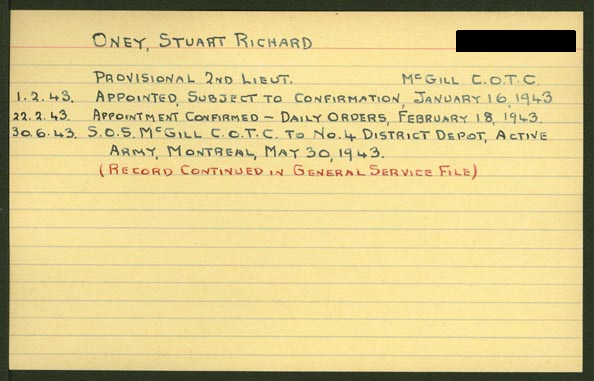 ONEY, STUART RICHARD
PROVISIONAL 2ND LIEUT. McGILL C.O.T.C.
1.2.43. APPOINTED, SUBJECT TO CONFIRMATION, JANUARY 16, 1943
22.2.43. APPOINTMENT CONFIRMED – DAILY ORDERS, FEBRUARY 18, 1943.
30.6.43. S.O.S. McGILL C.O.T.C. TO NO.4 DISTRICT DEPOT, ACTIVE
ARMY, MONTREAL, MAY 30, 1943.
(RECORD CONTINUED IN GENERAL SERVICE FILE)